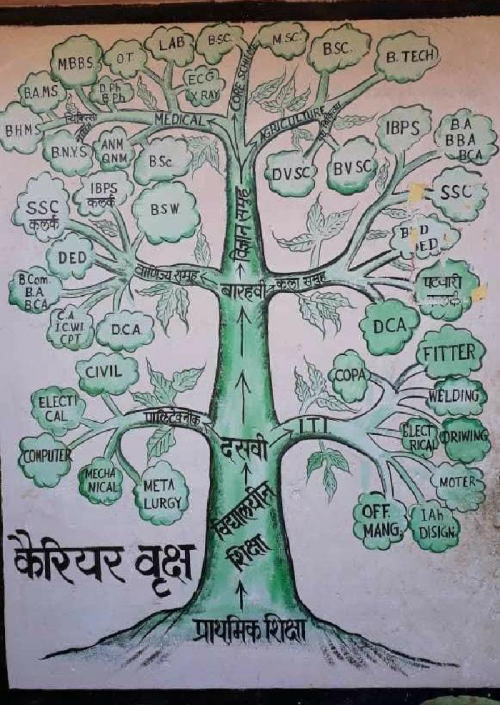 M.B.B.S
O.T
LAB
B.SC.
M.SC.
B.SC.
B. TECH
CORE SCIENCE
ECG
X RAY
D.Ph
B.Ph
B.A.M.S
B H M S
MEDICAL
AGRICULTURE
B.N.Y.S
ANM
GNM
B.Sc
DVSC
BVSC
IBPS
B.A
BBA
BCA
SSC
विज्ञान समूह
SSC
क्लर्क
IBPS
क्लर्क
BSW
DED
B.Com.
B.A
BCA
C.A
I.C.WI
CPT
DCA
वाणिज्य समूह
बारहवीं
कला समूह
पटवारी
DCA
CIVIL
ELECTI
CAL
COMPUTER
MECHA
NICAL
META
LURGY
पालिटेक्नीक
दसवीं
ITI
COPA
FITTER
WELDING
ELECT
RICAL
DRIWING
MOTER
OFF.
MANG.
DISIGN
विद्यालयीन
शिक्षा
कैरियर वृक्ष
प्राथमिक शिक्षा